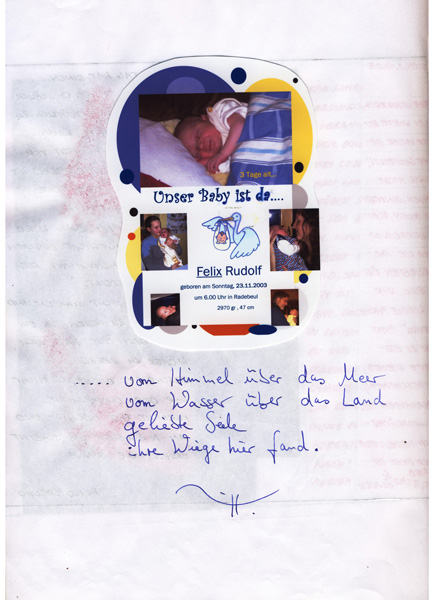 3 Tage alt...
Unser Baby ist da....
Felix Rudolf
geboren am Sonntag, 23.11.2003
um 6.00 Uhr in Radebeul
2970 gr , 47 cm
..... vom Himmel über das Meer
vom Wasser über das Land
geliebte Seele
ihre Wiege hier fand.